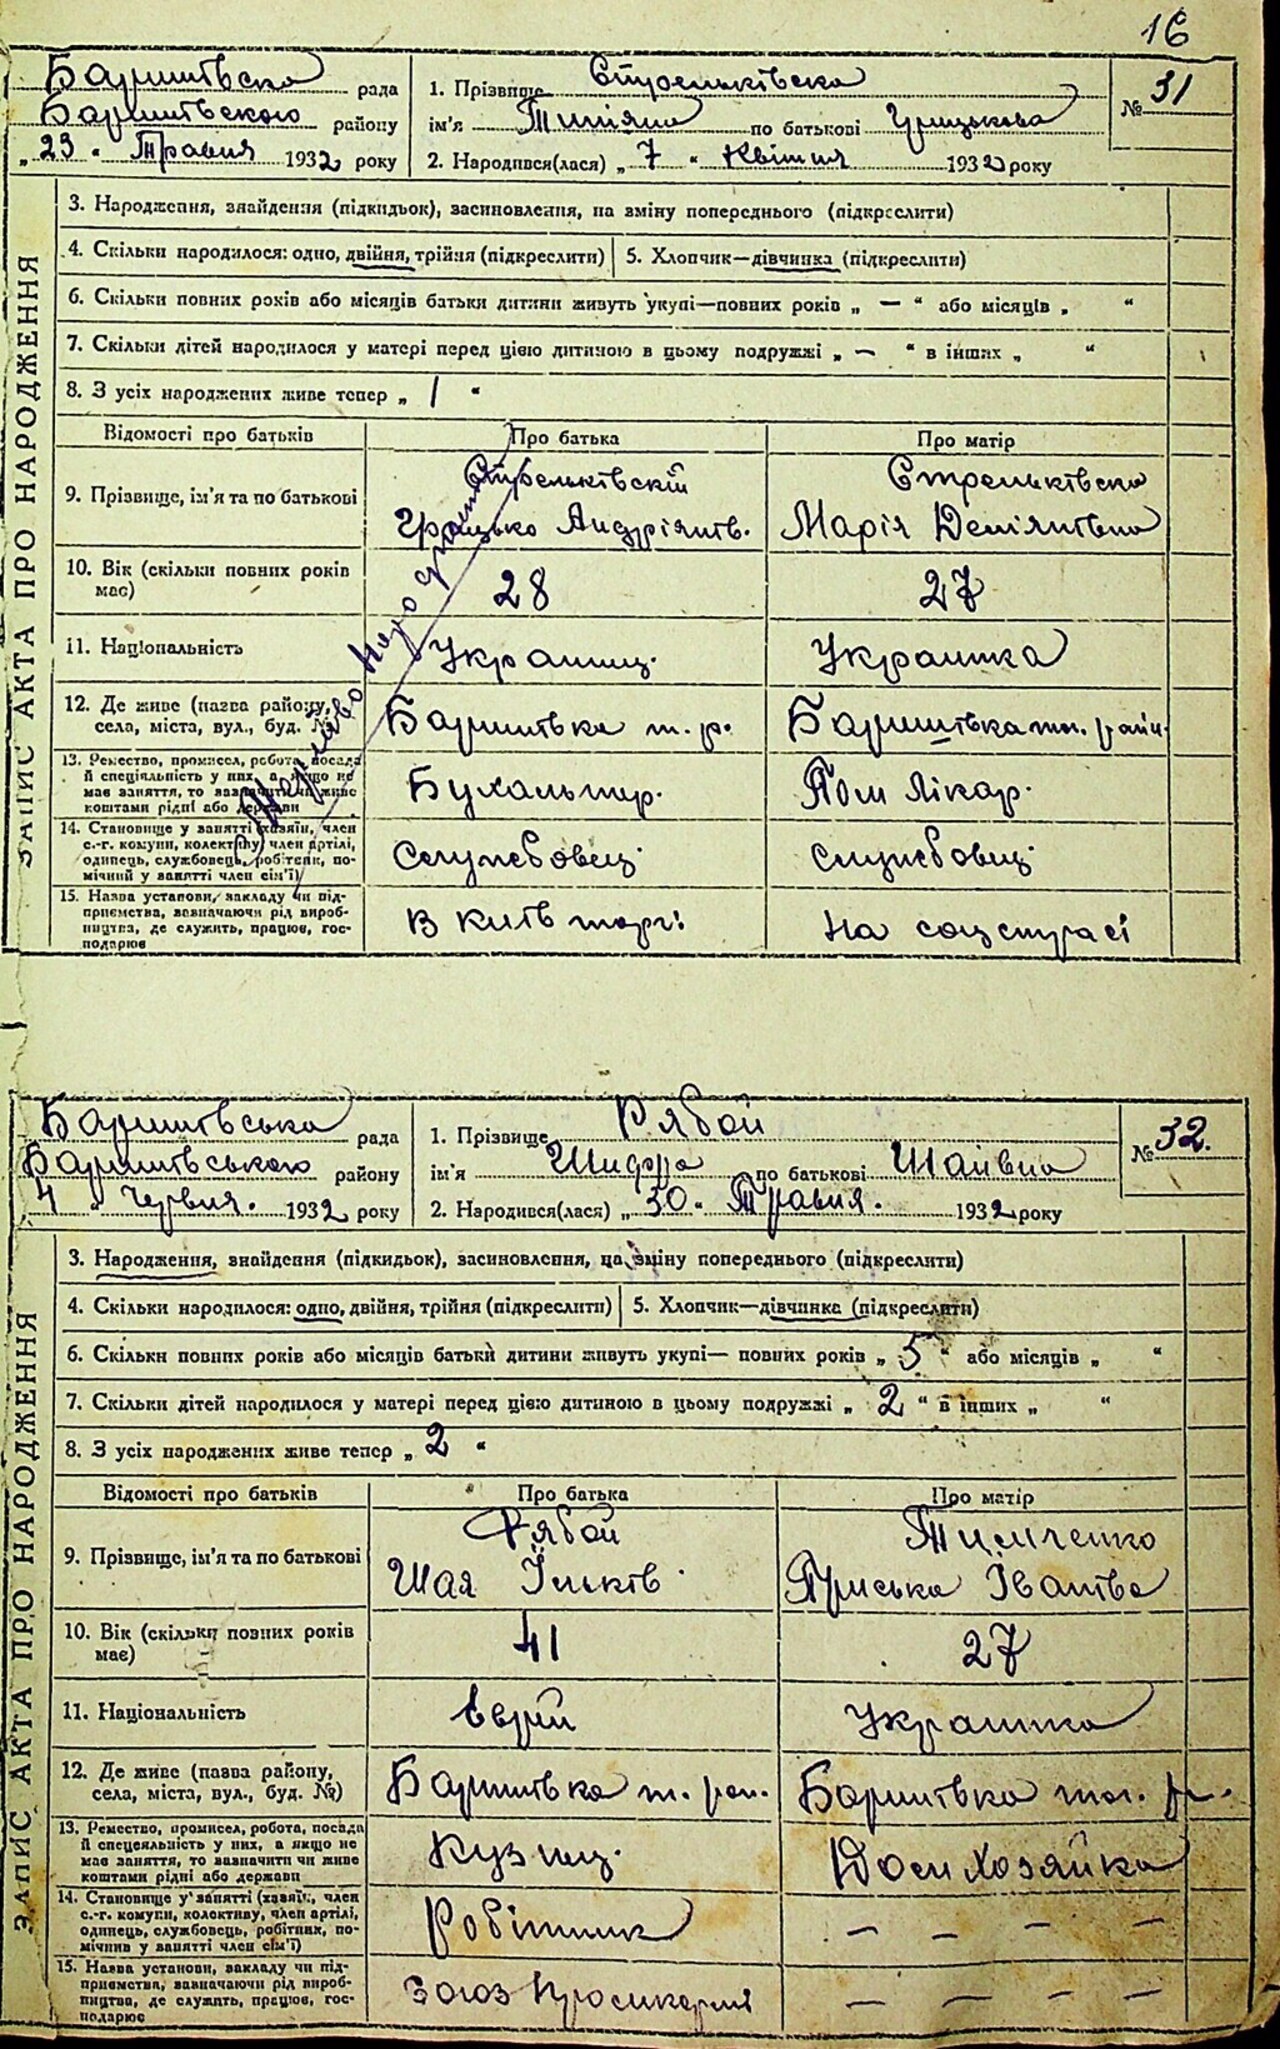 16
Баришівська рада
Баришівською району
„ 23 “ Травня 1932 року
1. Прізвище Стрельківська
ім’я Тетяна по батькові Грицькова
2. Народився(лася) „ 7 “ Квітня 1932 року
№ 31
ЗАПИС АКТА ПРО НАРОДЖЕННЯ
3. Народження, знайдення (підкидьок), засиновлення, на зміну попереднього (підкреслити)
4. Скільки народилося: одно, двійня, трійня (підкреслити) 5. Хлопчик—дівчинка (підкреслити)
6. Скільки повних років або місяців батьки дитини живуть укупі—повних років „ — “ або місяців „ “
7. Скільки дітей народилося у матері перед цією дитиною в цьому подружжі „ — “ в інших „ “
8. З усіх народжених живе тепер „ 1 “
Відомості про батьків Про батька Про матір
9. Прізвище, ім’я та по батькові
Стрельківский
Грицько Андріянів.
Стрельківска
Марія
10. Вік (скільки повних років має)
28
27
11. Національність
Українц.
Українка
12. Де живе (назва району, села, міста, вул., буд. №)
Баришівка т. р.
Баришівка рай.
13. Ремество, промисел, робота, посада
й спеціяльність у них, а якщо не
має заняття, то зазначити чи живе
коштами рідні або держави
Бухальтер.
Пом Лікар.
14. Становище у занятті (хазяїн, член
с.-г. комуни, колективу, член артілі,
одинець, службовець, робітник, по-
мічний у занятті член сім’ї)
Службовец.
Службовец.
15. Назва установи, закладу чи під-
приємства, зазначаючи рід вироб-
ництва, де служить, працює, гос-
подарює
На соцстрасі
Баришівська рада
Баришівською району
„ 4 “ Червня. 1932 року
1. Прізвище Рябой
ім’я Шифра по батькові Шаївна
2. Народився(лася) „ 30 “ Травня. 1932 року
№ 32.
ЗАПИС АКТА ПРО НАРОДЖЕННЯ
3. Народження, знайдення (підкидьок), засиновлення, на зміну попереднього (підкреслити)
4. Скільки народилося: одно, двійня, трійня (підкреслити) 5. Хлопчик—дівчинка (підкреслити)
6. Скільки повних років або місяців батьки дитини живуть укупі— повних років „ 5 “ або місяців „ “
7. Скільки дітей народилося у матері перед цією дитиною в цьому подружжі „ 2 “ в інших „ “
8. З усіх народжених живе тепер „ 2 “
Відомості про батьків Про батька Про матір
9. Прізвище, ім’я та по батькові
Рябой
Шая
Тимченко
Приська Іванівна
10. Вік (скільки повних років має)
41
27
11. Національність
Еврей
Українка
12. Де живе (назва району, села, міста, вул., буд. №)
Баришівка т. рай.
Баришівка
13. Ремество, промисел, робота, посада
й спецеяльність у них, а якщо не
має заняття, то зазначити чи живе
коштами рідні або держави
Кузнец.
Дом Хозяйка
14. Становище у занятті (хазяїн, член
с.-г. комуни, колективу, член артілі,
одинець, службовець, робітник, по-
мічник у занятті член сім’ї)
Робітник
— — — —
15. Назва установи, закладу чи під-
приємства, зазначаючи рід вироб-
ництва, де служить, працює, гос-
подарює
Зоюз
— — — —